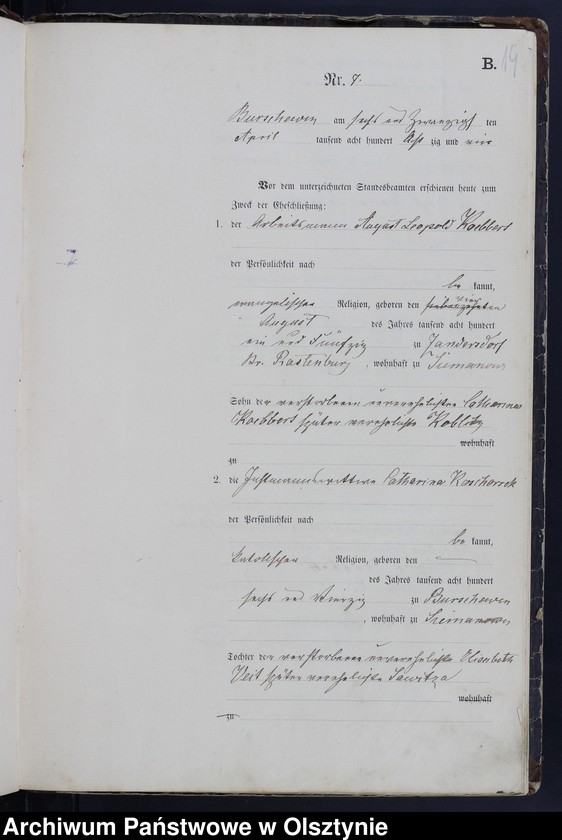 B. 19
Nr. 7.
Burschewen am sechs und Zwanzigsten
April tausend acht hundert Acht zig und vier
Vor dem unterzeichneten Standesbeamten erschienen heute zum
Zweck der Eheschließung:
1. der Arbeitsmann August Leopold Kaebbert
der Persönlichkeit nach
be kannt,
evangelischen Religion, geboren den siebenzehnten
August des Jahres tausend acht hundert
ein und Fünfzig zu Jandersdorf
Kr. Rastenburg, wohnhaft zu Siemanowen
Sohn der verstorbenen unverehelichten Catharina
Kaebbert später verehelichte Koblitz
wohnhaft
zu
2. die Instmannswittwe Catharina Kascharrek
der Persönlichkeit nach
be kannt,
katolischen Religion, geboren den —
des Jahres tausend acht hundert
sechs und Vierzig zu Burschewen
, wohnhaft zu Siemanowen
Tochter der verstorbenen unverehelichte Elisabeth
Veit später verehelichte Sawitza
wohnhaft
zu
Archiwum Państwowe w Olsztynie